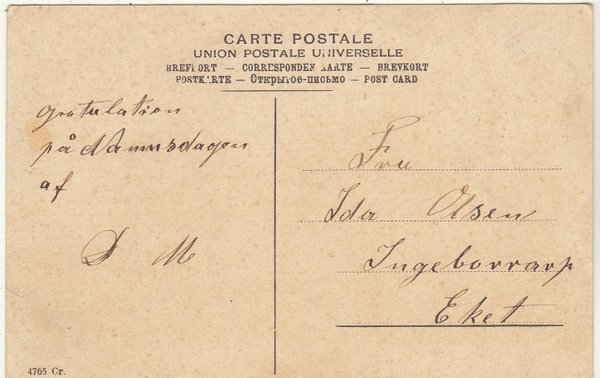 CARTE POSTALE
UNION POSTALE UNIVERSELLE
BREFKORT — CORRESPONDENZKARTE — BREVKORT
POSTKARTE — Открытое-письмо — POST CARD
gratulation
på Namnsdagen
af
D M
Fru
Ida Åsen
Ingeborrarp
Eket
4765 Cr.